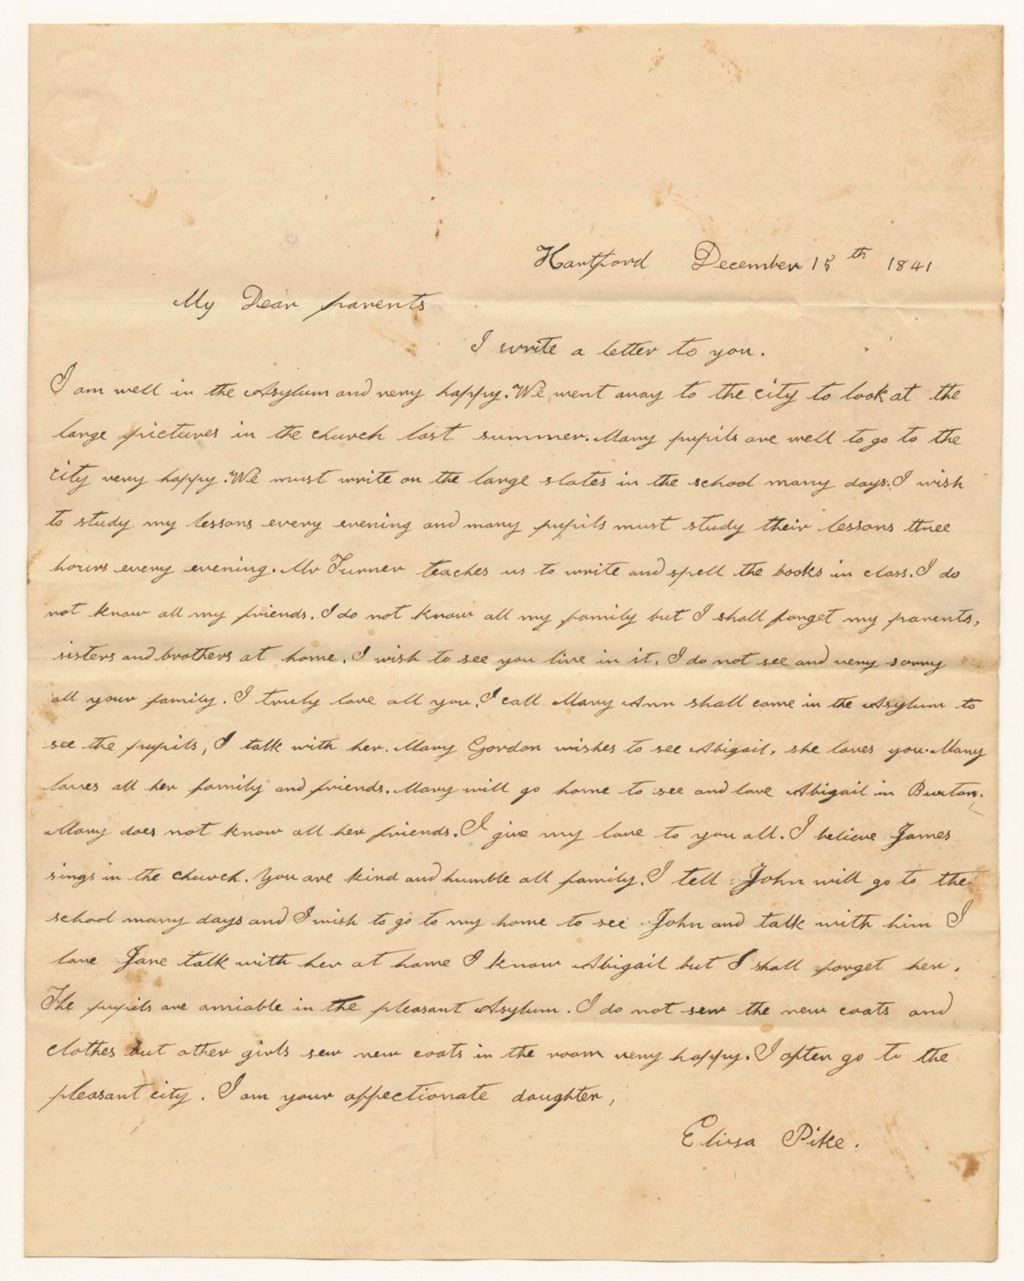 Hartford December 15th 1841
My Dear parents
I write a letter to you.
I am well in the Asylum and very happy. We went away to the city to look at the
large pictures in the church last summer. Many pupils are well to go to the
city very happy. We must write on the large slates in the school many days. I wish
to study my lessons every evening and many pupils must study their lessons three
hours every evening. Mr Turner teaches us to write and spell the books in class. I do
not know all my friends. I do not know all my family but I shall forget my parents,
sisters and brothers at home. I wish to see you live in it. I do not see and very sorry
all your family. I truly love all you. I call Mary Ann shall come in the Asylum to
see the pupils, I talk with her. Mary Gordon wishes to see Abigail, she loves you. Mary
loves all her family and friends. Mary will go home to see and love Abigail in Buxton.
Mary does not know all her friends. I give my love to you all. I believe James
sings in the church. You are kind and humble all family. I tell John will go to the
school many days and I wish to go to my home to see John and talk with him I
love Jane talk with her at home I know Abigail but I shall forget her.
The pupils are amiable in the pleasant Asylum. I do not sew the new coats and
clothes but other girls sew new coats in the room very happy. I often go to the
pleasant city. I am your affectionate daughter,
Elisa Pike.